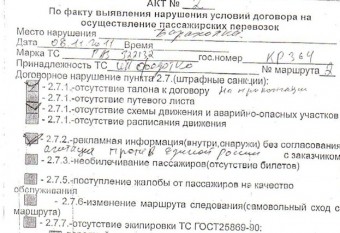 АКТ № 2
По факту выявления нарушения условий договора на
осуществление пассажирских перевозок
Место нарушения Бараховка
Дата 08.11.2011 Время
Марка ТС 32132 гос.номер КР364
Принадлежность ТС ИП № маршрута 2
Договорное нарушение пункта 2.7.(штрафные санкции):
- 2.7.1.-отсутствие талона к договору на
- 2.7.1.-отсутствие путевого листа
- 2.7.1.-отсутствие схемы движения и аварийно-опасных участков
- 2.7.1.-отсутствие расписания движения
- 2.7.2.-рекламная информация(внутри,снаружи) без согласования
с заказчиком
агитация против единой россии
- 2.7.3.-необилечивание пассажиров(отсутствие билетов)
- 2.7.5.-поступление жалобы от пассажиров на качество
обслуживания
- 2.7.6-изменение маршрута следования(самовольный сход с
маршрута)
- 2.7.7.-отсутствие экипировки ТС ГОСТ25869-90: